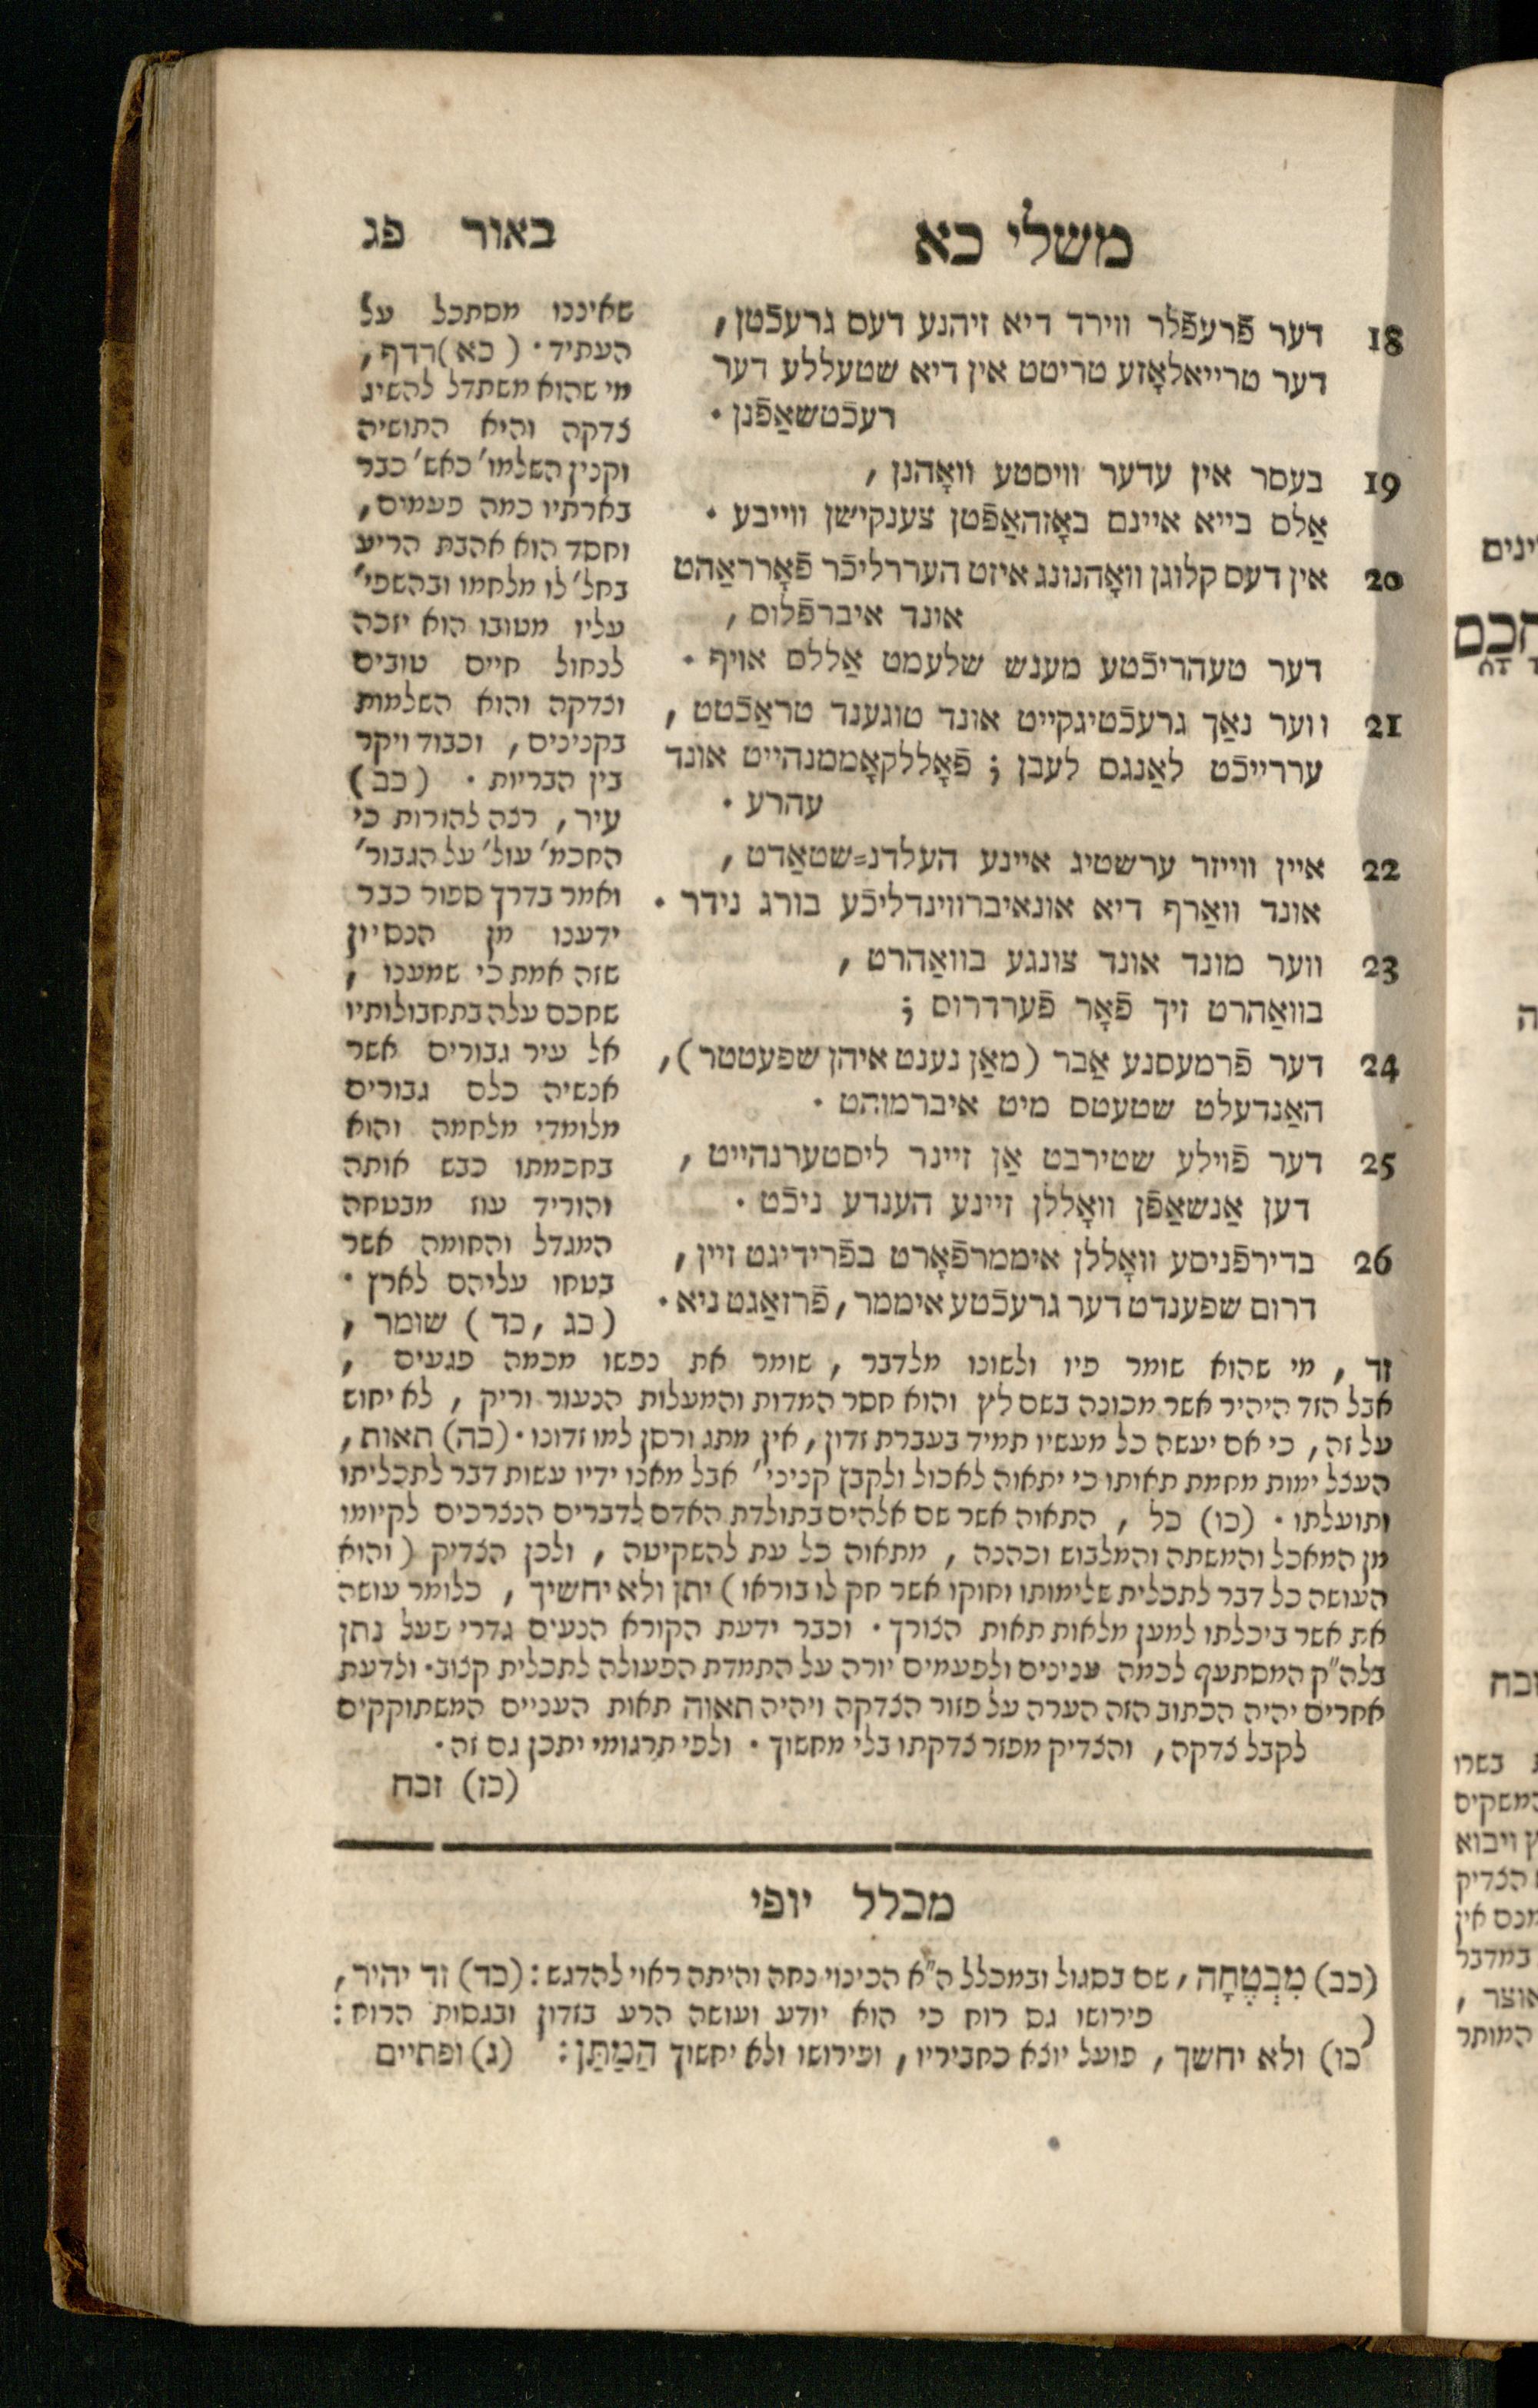 משלי כא
באור פג
18 דער פֿרעפֿלר ווירד דיא זיהנע דעס גרעכֿטן,
דער טרייאלאָזע טריטט אין דיא שטעללע דער
רעכֿטשאַפֿנן.
19 בעסר אין עדער וויסטע וואָהנן,
אַלס בייא איינם באָזהאַפֿטן צענקישן ווייבע.
20 אין דעס קלוגן וואָהנונג איזט העררליכֿר פֿאָרראַהט
אונד איברפֿלוס,
דער טעהריכֿטע מענש שלעמט אַללס אויף.
21 ווער נאַך גרעכֿטיגקייט אונד טוגענד טראַכֿטט,
עררייכֿט לאַנגס לעבן; פֿאָללקאָממנהייט אונד
עהרע.
22 איין ווייזר ערשטיג איינע העלדנ=שטאַדט,
אונד וואַרף דיא אונאיברווינדליכֿע בורג נידר.
23 ווער מונד אונד צונגע בוואַהרט,
בוואַהרט זיך פֿאָר פֿערדרוס;
24 דער פֿרמעסנע אַבר (מאַן נענט איהן שפעטטר),
האַנדעלט שטעטס מיט איברמוהט.
25 דער פֿוילע שטירבט אַן זיינר ליסטערנהייט,
דען אַנשאַפֿן וואָללן זיינע הענדע ניכֿט.
26 בדירפֿניסע וואָללן איממרפֿאָרט בפֿרידיגט זיין,
דרום שפענדט דער גרעכֿטע איממר, פֿרזאַגט ניא.
שאיננו מסתכל על
העתיד. (כא) רדף,
מי שהוא משתדל להשיג
צדקה והיא התושיה
וקנין השלמו' כאש' כבר
בארתיו כמה פעמים,
וחסד הוא אהבת הריע
בחל' לו מלחמו ובהשפי'
עליו מטובו הוא יזכה
לנחול חיים טובים
וצדקה והוא השלמות
בקנינים, וכבוד ויקר
בין הבריות. (כב)
עיר, רצה להורות כי
החכמ' עול' על הגבור'
ואמר בדרך ספור כבר
ידענו מן הנסיון
שזה אמת כי שמענו,
שחכם עלה בתחבולותיו
אל עיר גבורים אשר
אנשיה כלם גבורים
מלומדי מלחמה והוא
בחכמתו כבש אותה
והוריד עוז מבטחה
המגדל והחומה אשר
בטחו עליהם לארץ.
(כג, כד) שומר,
זד, מי שהוא שומר פיו ולשונו מלדבר, שומר את נפשו מכמה פגעים,
אבל הזד היהיר אשר מכונה בשם לץ והוא חסר המדות והמעלות הנעור וריק, לא יחוש
על זה, כי אם יעשה כל מעשיו תמיד בעברת זדון, אין מתג ורסן למו זדונו. (כה) תאות,
העצל ימות מחמת תאותו כי יתאוה לאכול ולקבץ קניני' אבל מאנו ידיו עשות דבר לתכליתו
ותועלתו. (כו) כל, התאוה אשר שם אלהים בתולדת האדם לדברים הנצרכים לקיומו
מן המאכל והמשתה והמלבוש וכהנה, מתאוה כל עת להשקיטה, ולכן הצדיק (והוא
העושה כל דבר לתכלית שלימותו וחוקו אשר חק לו בוראו) יתן ולא יחשיך, כלומר עושה
את אשר ביכלתו למען מלאות תאות הצורך. וכבר ידעת הקורא הנעים גדרי פעל נתן
בלה"ק המסתעף לכמה ענינים ולפעמים יורה על התמדת הפעולה לתכלית קצוב. ולדעת
אחרים יהיה הכתוב הזה הערה על פזור הצדקה ויהיה תאוה תאות העניים המשתוקקים
לקבל צדקה, והצדיק מפזר צדקתו בלי מחשוך. ולפי תרגומי יתכן גם זה.
(כז) זבח
מכלל יופי
(כב) מִבְטֶחָה, שם בסגול ובמכלל ה"א הכינוי נחה והיתה ראוי להדגש: (כד) זד יהיר,
פירושו גם רוח כי הוא יודע ועושה הרע בזדון ובגסות הרוח:
(כו) ולא יחשך, פועל יוצא כחביריו, ופירושו ולא יחשוך הַמַתַּן: (ג) ופתיים